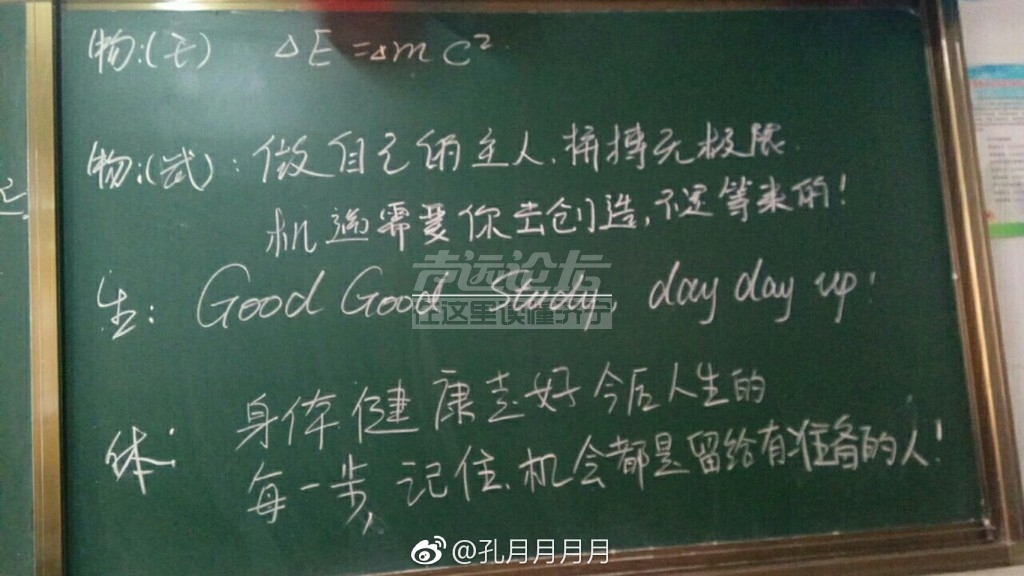 物:(王) ΔE=Δmc²
物:(武):做自己的主人.拼搏无极限.
机遇需要你去创造,不是等来的!
生: Good Good Study, day day up!
身体健康走好今后人生的
体:
每一步,记住.机会都是留给有准备的人!
@孔月月月月